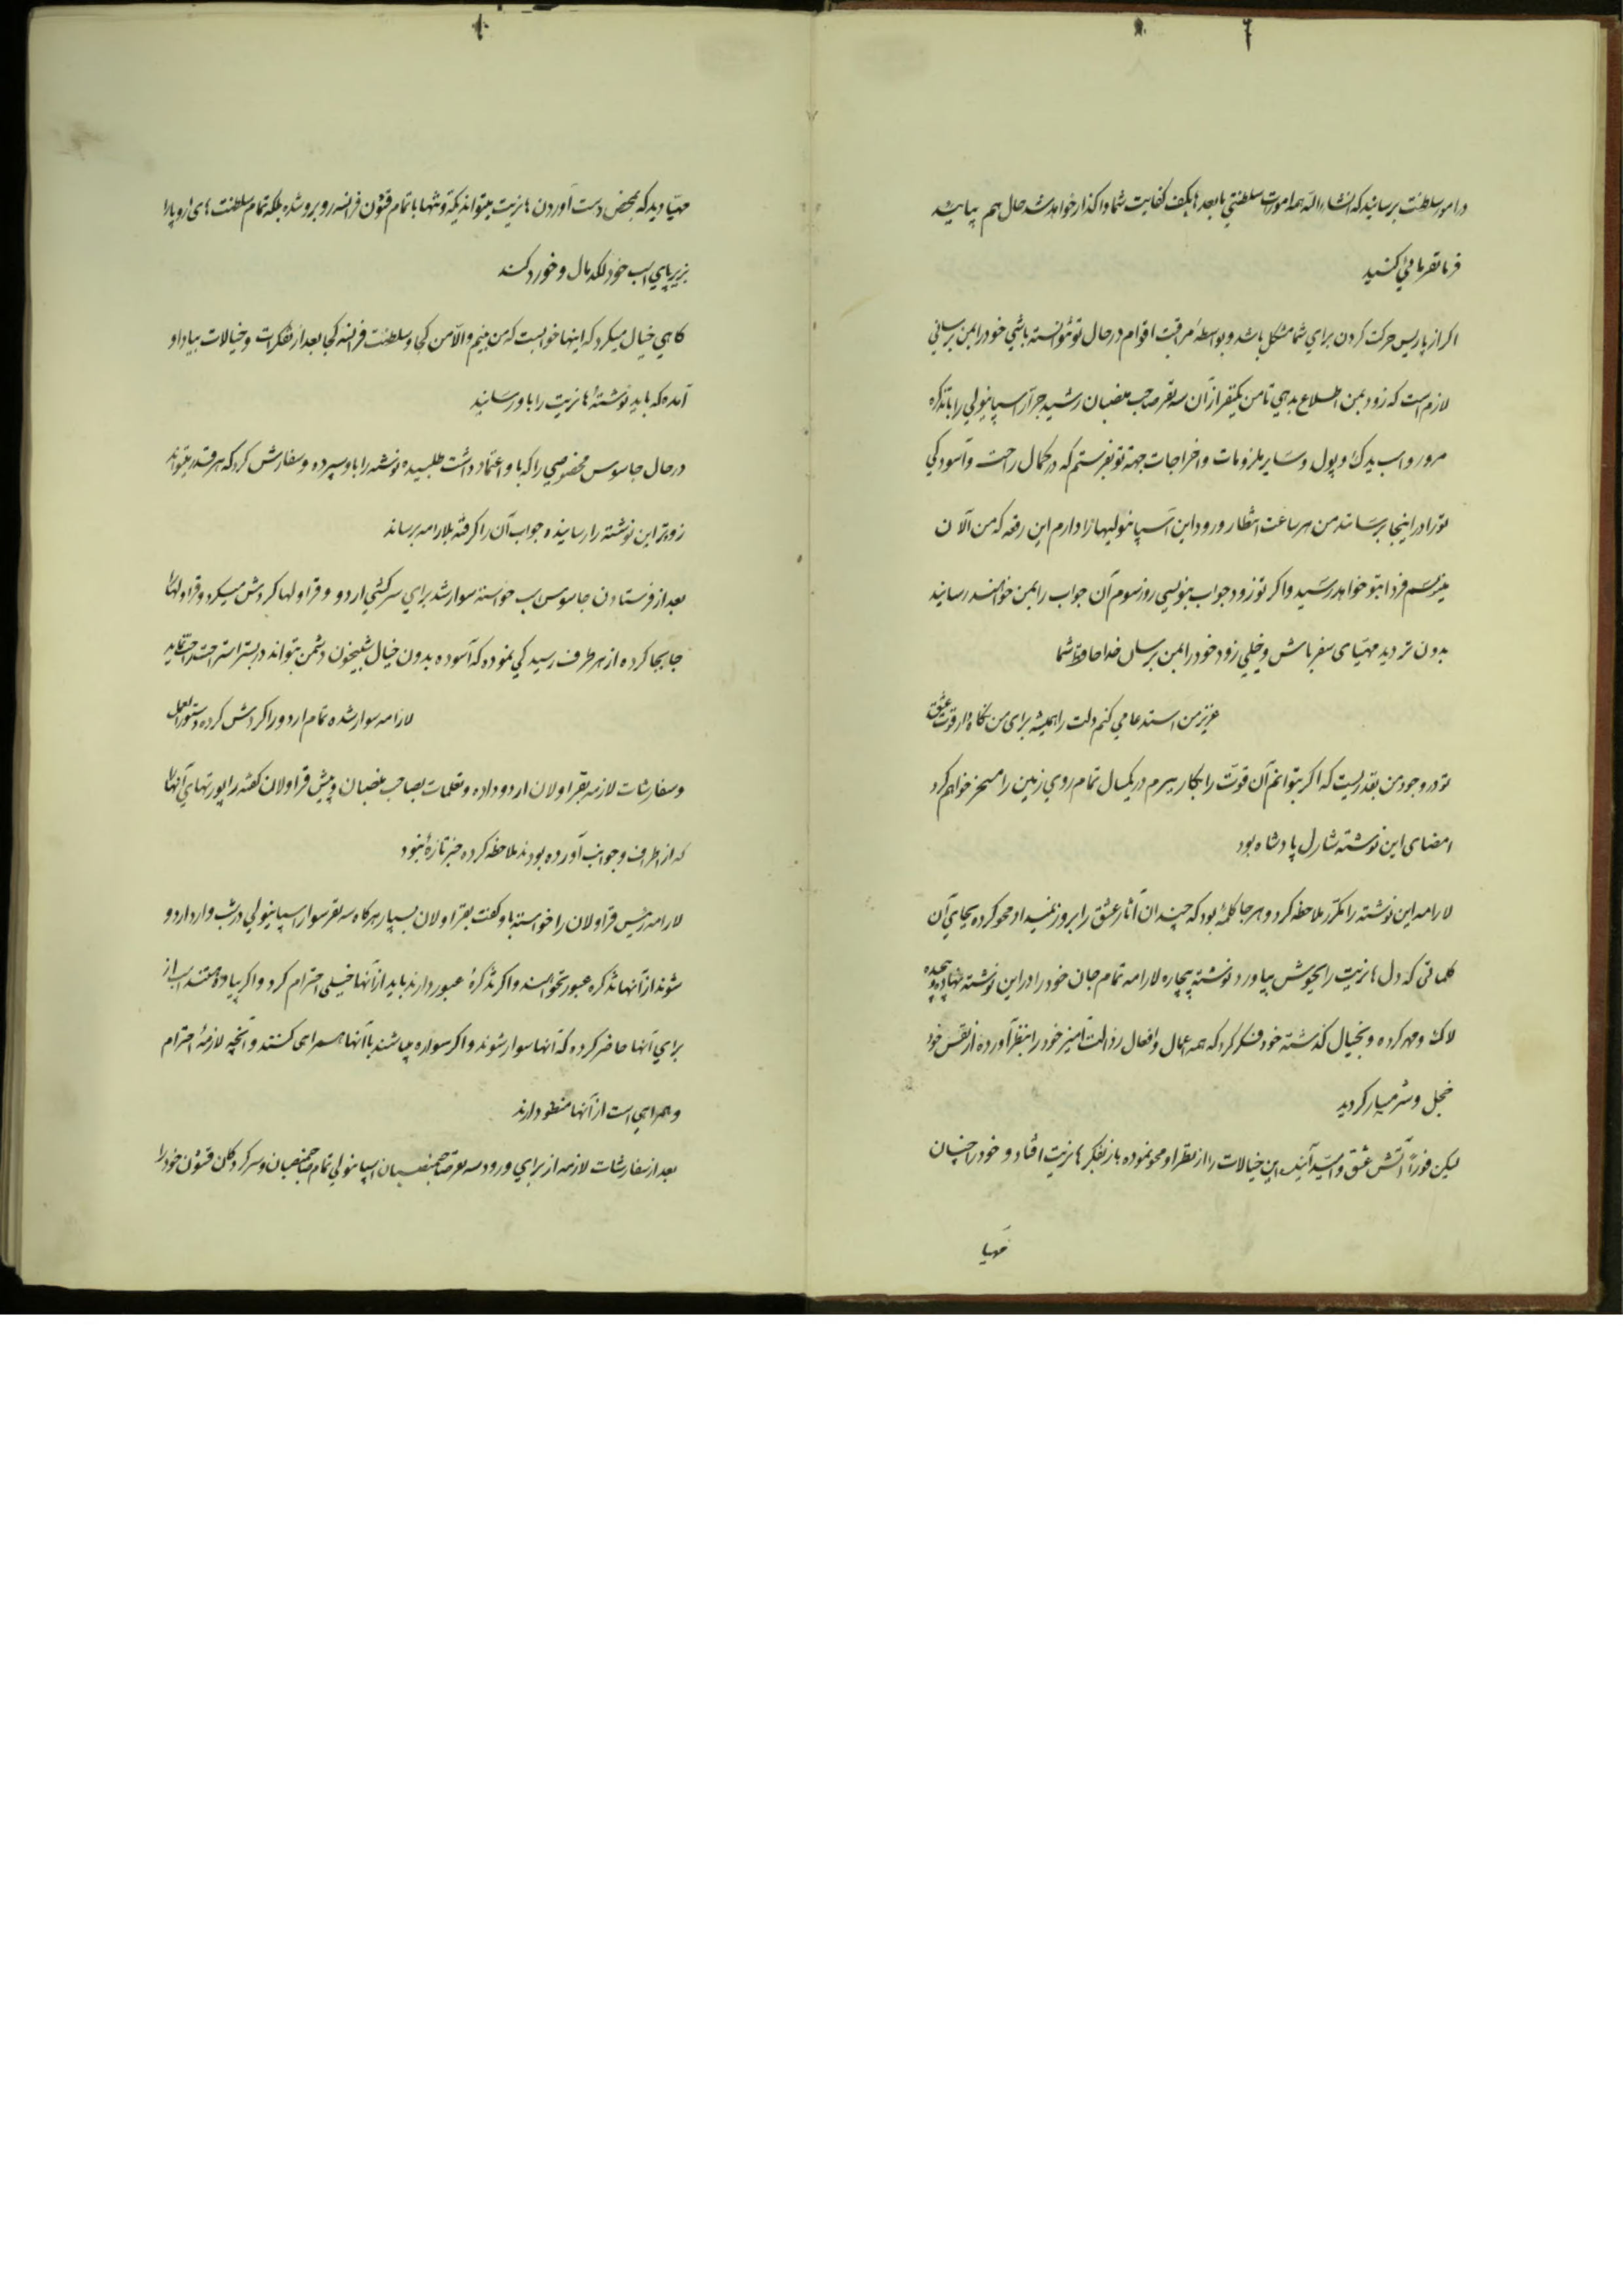 در امور سلطنت برسانید که انشاءالله همه امورات سلطنتی بابعدها بکف کفایت شما واگذار خواهد شد حال هم بیایید
فرمانفرمائی کنید
اگر از پاریس حرکت کردن برای شما مشکل باشد و بواسطهٔ مراقبت اقوام در حال تو نتوانسته باشی خود را بمن برسانی
لازم است که زود بمن اطلاع بدهی تا من یکنفر از آن سه نفر صاحب منصبان رشید جرار اسپانیولی را با تذکره
مرور و اسب یدک و پول و سایر ملزومات و اخراجات جهة تو بفرستم که در کمال راحت و آسودگی
تو را در اینجا برسانند من هر ساعت انتظار ورود این اسپانیولیها را دارم این رقعه که من الآن
مینویسم فردا بتو خواهد رسید و اگر تو زود جواب بنویسی روز سوم آن جواب را بمن خواهند رسانید
بدون تردید مهیای سفر باش و خیلی زود خود را بمن برسان خدا حافظ شما
عزیز من استدعا می کنم دلت را همیشه برای من نگاه دار قوت عشق
تو در وجود من بقدریست که اگر بتوانم آن قوت را بکار ببرم در یکسال تمام روی زمین را مسخر خواهم کرد
امضای این نوشته شارل پادشاه بود
لارامه این نوشته را مکرر ملاحظه کرد و هر جا کلمهٔ بود که چندان آثار عشق را بروز نمیداد محو کرده بجای آن
کلماتی که دل هانریت را بجوش بیاورد نوشته بیچاره لارامه تمام جان خود را در این نوشته نهاده پیچیده
لاک و مهر کرده و بخیال گذشته خود فکر کرد که همه اعمال و افعال رذالت آمیز خود را بنظر آورده از نفس خود
خجل و شرمسار گردید
لیکن فوراً آتش عشق و امید آینده این خیالات را از نظر او محو نموده باز بفکر هانریت افتاد و خود را چنان
مهیا
مهیا دید که بمحض دست آوردن هانریت میتواند یکه و تنها با تمام قشون فرانسه روبرو شده بلکه تمام سلطنت های اروپا را
بزیر پای اسب خود لگدمال و خورد کند
گاهی خیال میکرد که اینها خوابست که من بینم والا من کجا و سلطنت فرانسه کجا بعد از تفکرات و خیالات بیاد او
آمده که باید نوشتهٔ هانریت را باو رسانید
در حال جاسوس مخصوصی را که باو اعتماد داشت طلبیده نوشته را باو سپرده و سفارش کرد که هر قدر بتواند
زودتر این نوشته را رسانیده جواب آن را گرفته بلارامه برساند
بعد از فرستادن جاسوس اسب خواسته سوار شد برای سرکشی اردو و قراولها گردش میکرد و قراولها را
جابجا کرده از هر طرف رسیدگی نموده که آسوده بدون خیال شبیخون دشمن بتواند در بستر استراحت راحت نماید
لارامه سوار شده تمام اردو را گردش کرده دستورالعمل
و سفارشات لازمه بقراولان اردو داده و تعلیمات بصاحب منصبان و پیش قراولان گفته راپورتهای آنها را
که از اطراف و جوانب آورده بودند ملاحظه کرده خبر تازهٔ نبود
لارامه رئیس قراولان را خواسته باو گفت بقراولان بسپار هرگاه سه نفر سوار اسپانیولی در شب وارد اردو
شوند از آنها تذکره عبور بخواهند و اگر تذکرهٔ عبور دارند باید از آنها خیلی احترام کرد و اگر پیاده هستند اسب از
برای آنها حاضر کرده که آنها سوار شوند و اگر سواره میباشند با آنها همراهی کنند و آنچه لازمهٔ احترام
و همراهی است از آنها منظور دارند
بعد از سفارشات لازمه از برای ورود سه نفر صاحبمنصبان اسپانیولی تمام صاحبمنصبان و سرکردگان قشون خود را